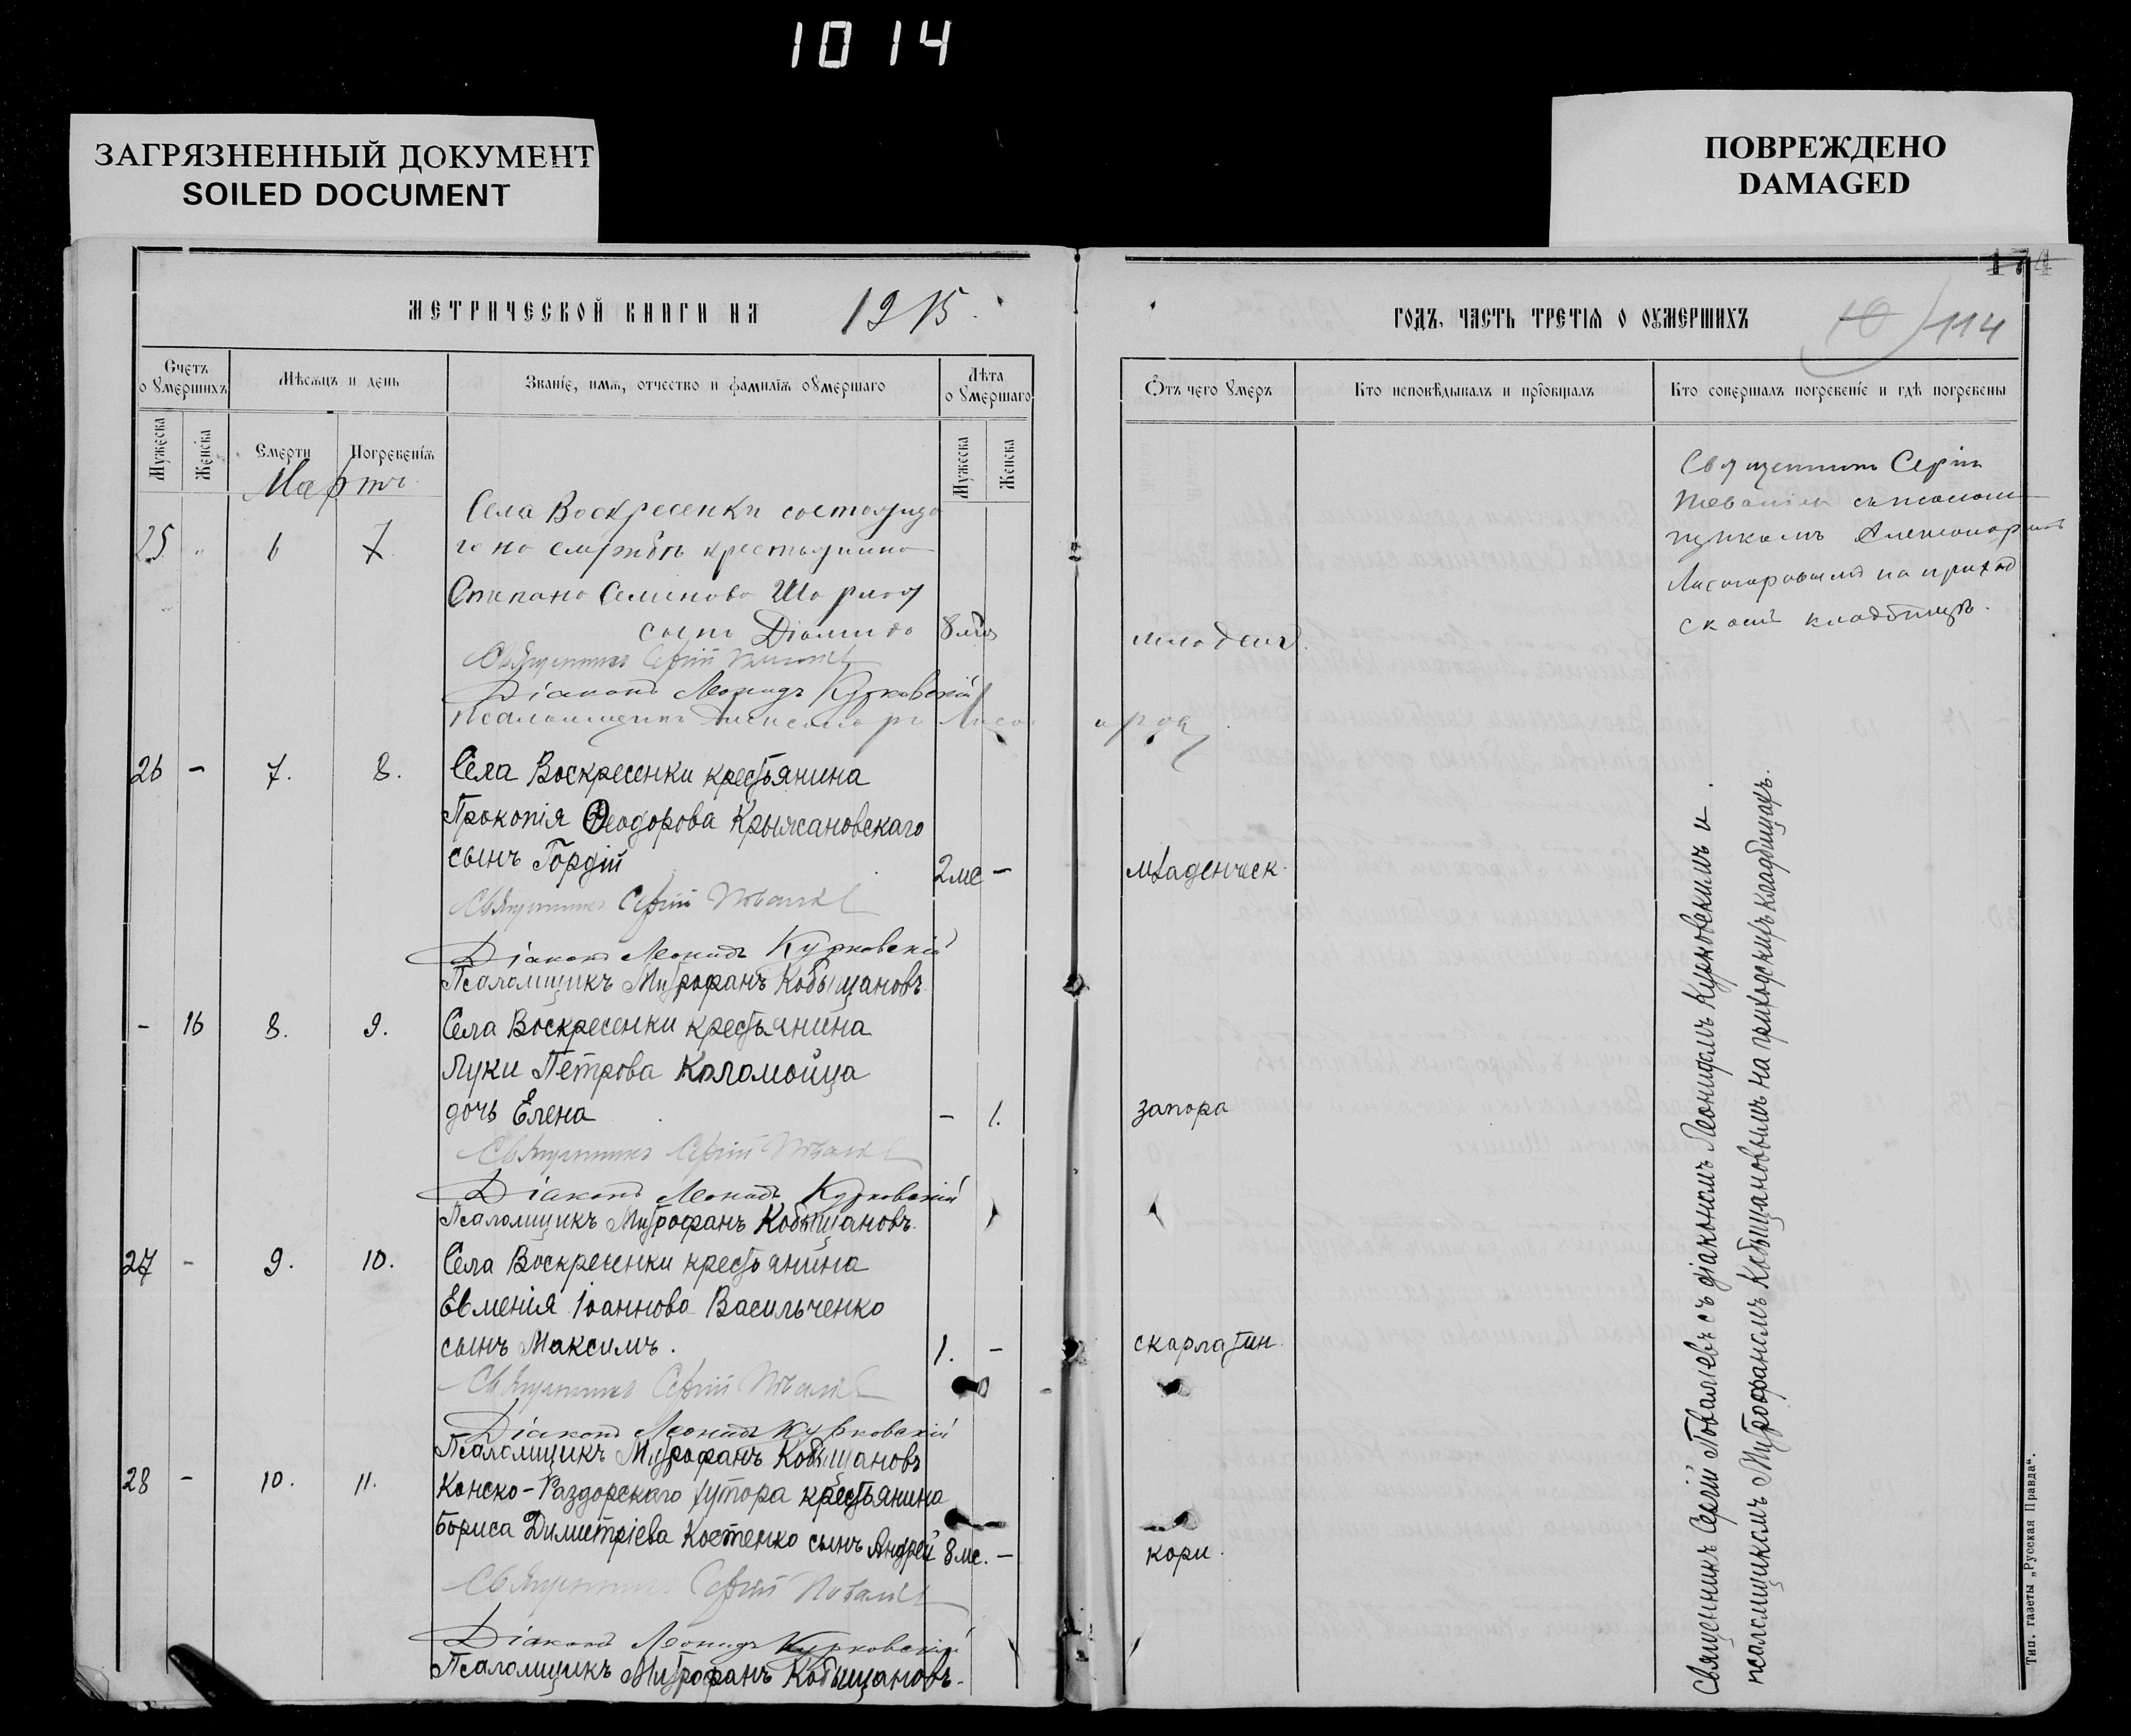 1014
ЗАГРЯЗНЕННЫЙ ДОКУМЕНТ
SOILED DOCUMENT
ПОВРЕЖДЕНО
DAMAGED
174
МЕТРИЧЕСКОЙ КНИГИ НА 1915
ГОДЪ, ЧАСТЬ ТРЕТІЯ О ОУМЕРШИХЪ 114
Счетъ о Умершихъ
Мѣсяцъ и день
Званіе, имя, отчество и фамилія оУмершаго
Лѣта о Умершаго
Мужеска Женска Смерти Погребенія Мужеска Женска
Отъ чего Умеръ
Кто исповѣдывалъ и пріобщалъ
Кто совершалъ погребеніе и гдѣ погребены
Мартъ
25 " 6 7 Села Воскресенки состоящаго
на службѣ крестьянина
Степана Семенова
сынъ Діомидъ 8 мес младенч.
Священникъ Сергій
Діаконъ Леонидъ Курковскій
Псаломщикъ Александръ
Священникъ Сергій
псаломщикомъ Александромъ
на приход
скомъ кладбищѣ.
26 - 7. 8. Села Воскресенки крестьянина
Прокопія Ѳеодорова Крыжановскаго
сынъ Гордій 2 ме - младенческ.
Священникъ Сергій Поваляевъ
Діаконъ Леонидъ Курковскій
Псаломщикъ Митрофанъ Кобыщановъ
- 16 8. 9. Села Воскресенки крестьянина
Луки Петрова Коломойца
дочь Елена - 1. запора
Священникъ Сергій Поваляевъ
Діаконъ Леонидъ Курковскій
Псаломщикъ Митрофанъ Кобыщановъ.
27 - 9. 10. Села Воскресенки крестьянина
Евменія Іоаннова Васильченко
сынъ Максимъ. 1. - скарлатин.
Священникъ Сергій Поваляевъ
Діаконъ Леонидъ Курковскій
Псаломщикъ Митрофанъ Кобыщановъ
28 - 10. 11. Конско-Раздорскаго хутора крестьянина
Бориса Димитріева Костенко сынъ Андрей 8 ме. - кори.
Священникъ Сергій Поваляевъ
Діаконъ Леонидъ Курковскій
Псаломщикъ Митрофанъ Кобыщановъ.
Священникъ Сергій Поваляевъ съ діакономъ Леонидомъ Курковскимъ и
псаломщикомъ Митрофаномъ Кобыщановымъ на приходскихъ кладбищахъ.
Тип. газеты „Русская Правда“.